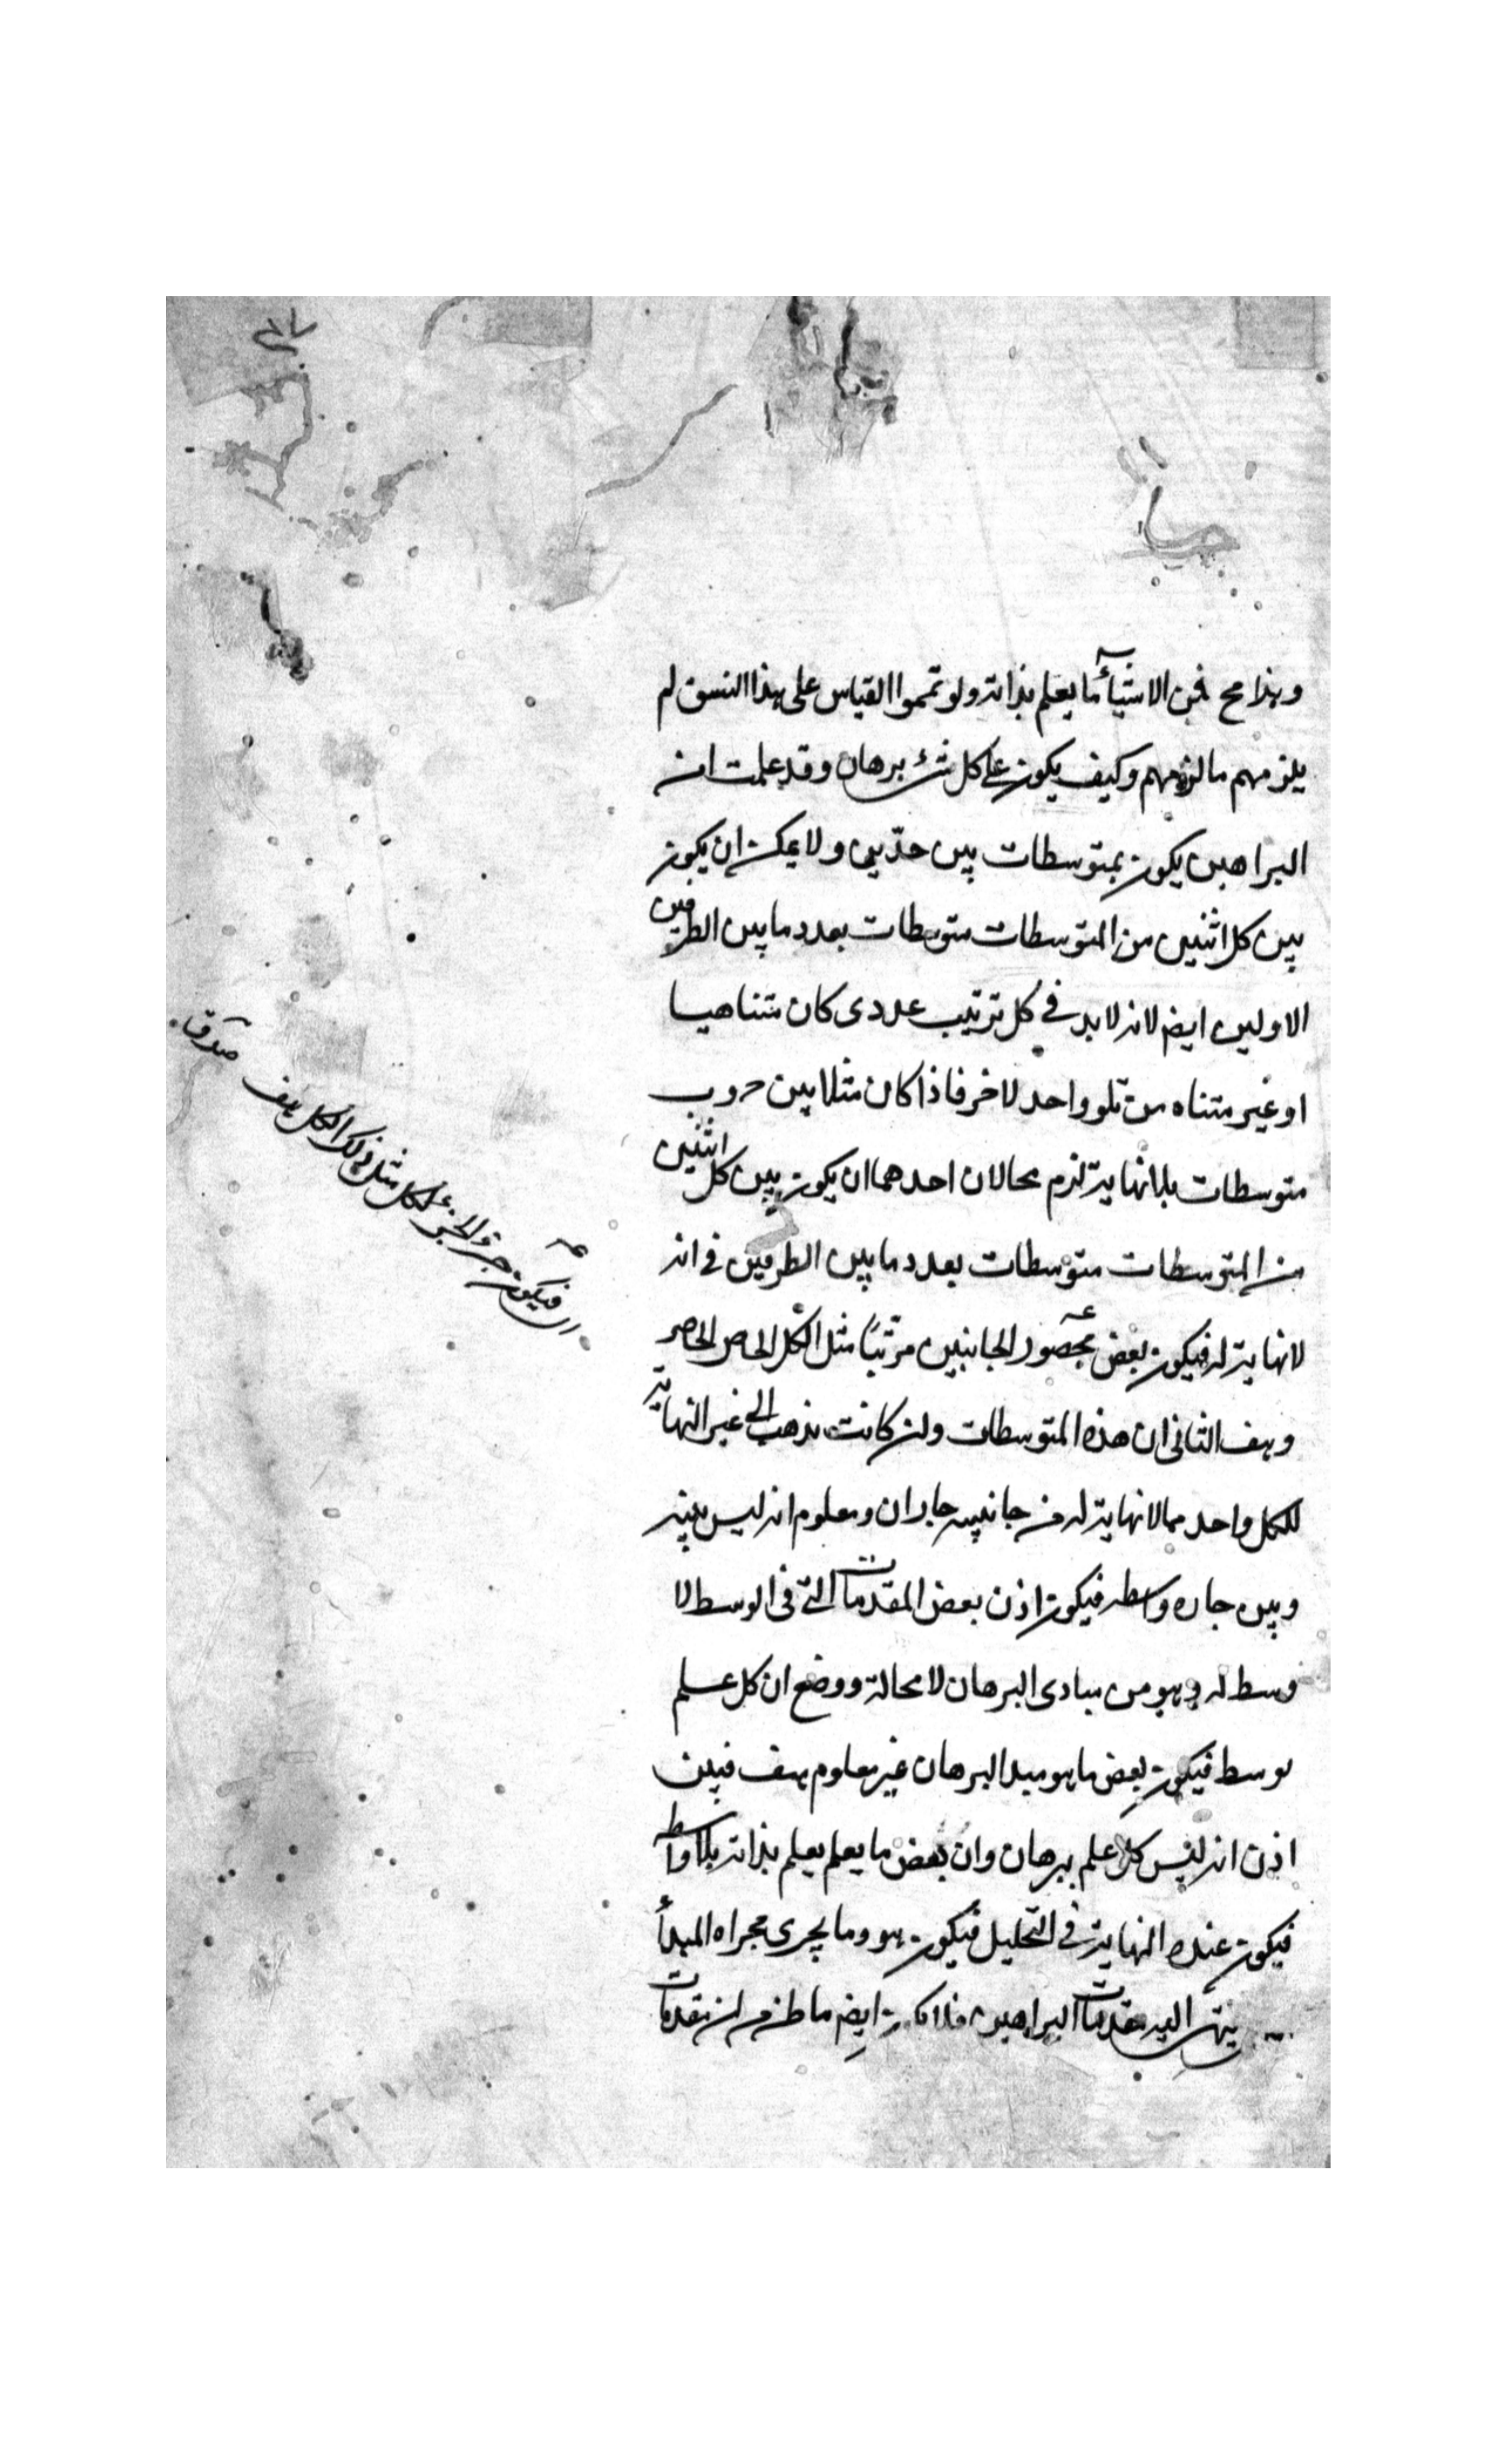 وهذا مح فمن الاشياء ما يعلم بذاته ولو تمموا القياس على هذا النسق لم
يلزمهم ما لزمهم وكيف يكون على كل شئ برهان وقد علمت ان
البراهين يكون بمتوسطات بين حدّين ولا يمكن ان يكون
بين كل اثنين من المتوسطات متوسطات بعدد ما بين الطرفين
الاولين ايض لانه لا بد في كل ترتيب عددى كان متناهيا
او غير متناه من تلو واحد لاخر فاذا كان مثلا بين حـ وب
متوسطات بلا نهاية لزم محالان احدهما ان يكون بين كل اثنين
من المتوسطات متوسطات بعدد ما بين الطرفين في انه
لا نهاية له فيكون بعض محصور الجانبين مرتّبًا مثل الكل الحاصر
وهف الثانى ان هذه المتوسطات ولن كانت تذهب الى غير النهاية
للكل واحد مما لا نهاية له من جانبيه جاران ومعلوم انه ليس بينه
وبين جاره واسطه فيكون اذن بعض المقدمات التى فى الوسط لا
وسط له وهو من مبادى البرهان لا محالة ووضع ان كل علم
بوسط فيكون بعض ما هو مبدا البرهان غير معلوم هف فبين
اذن انه ليس كل علم ببرهان وان بعض ما يعلم يعلم بذاته بلا واسطه
فيكون عنده النهاية في التحليل فيكون هو وما يجرى مجراه المبدأ
ينتهى اليه مقدمات البراهين ايض ما ظن من ان مقدمات
فيكون جزؤ الجزء كالكل مثل ذلك الكل هف